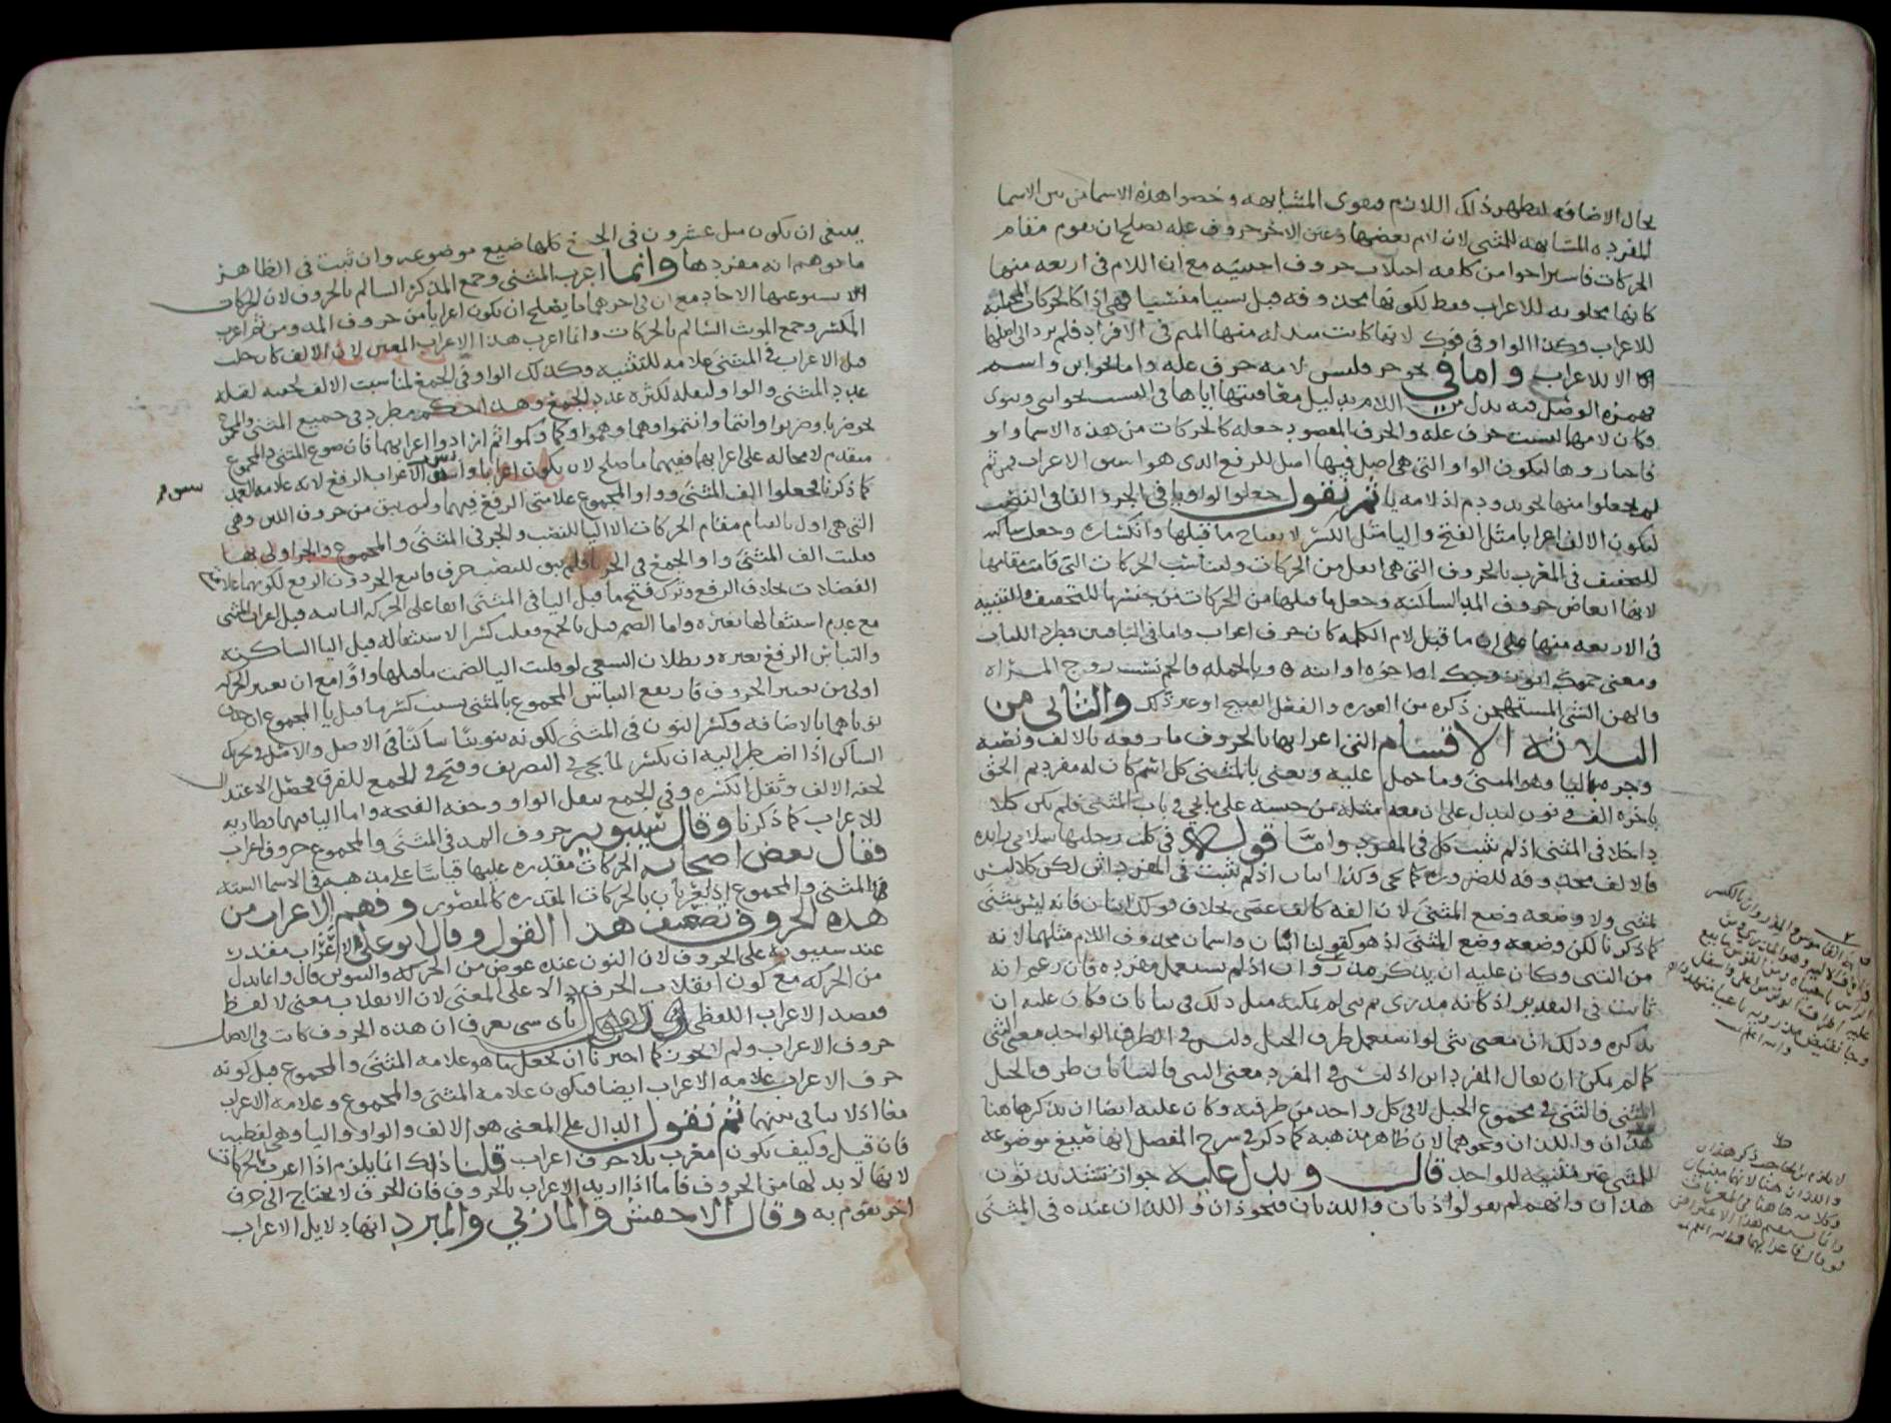 بحال الاضافه ليظهر ذلك اللازم فيقوى المشابهه وخصوا هذه الاسما من بين الاسما
المفرده المشابهه للمثنى لان لام بعضها وعين الاخر حروف عله يصلح ان يقوم مقام
الحركات فاستراحوا من كلفه اجتلاب حروف اجنبيه مع ان اللام فى اربعه منها
كانها مجلوبه للاعراب فقط لكونها محذوفه قبل نسيا منسيا فهى اذا كالحركات المجتلبه
للاعراب وكذا الواو فى فوك لانها كانت مبدله منها الميم فى الافراد فلم يرد الى اصلها
الا للاعراب واما فى نحو حر فليس لامه حرف عله واما نحو ابن واسم
فهمزه الوصل فيه بدل من اللام بدليل معاقبتها اياها فى النسب نحو ابنى وبنوى
فكان لامها ليست حرف عله والحرف المقصود جعله كالحركات من هذه الاسما واو
فاختاروها ليكون الواو التى هى اصل فيها اصل للرفع الذى هو اسبق الاعراب ومن ثم
لم يجعلوا منها نحو يد ودم اذ لامه يا ثم نقول جعلوا الواو يا فى الجر والفا فى النصب
ليكون الالف اعرابا مثل الفتح واليا مثل الكسر لانفتاح ما قبلها وانكساره وجعل ساكنه
للتخفيف فى المعرب بالحروف التى هى اثقل من الحركات وليناسب الحركات التى قامت مقامها
لانها ابعاض حروف المد الساكنه وجعل ما قبلها من الحركات من جنسها للتخفيف وللتنبيه
فى الاربعه منها على ان ما قبل لام الكلمه كان حرف اعراب واما فى الباقيين فطردا للباب
ومعنى حموك ابو زوجك او اخوه او ابنه وبالجمله فالحم نسيب زوج المراه
والهن الشى المستهجن ذكره من العوره والفعل القبيح او غير ذلك والثانى من
الثلاثه الاقسام التى اعرابها بالحروف ما رفعه بالالف ونصبه
وجره باليا وهو المثنى وما حمل عليه ونعنى بالمثنى كل اسم كان له مفرد ثم الحق
باخره الف ونون ليدل على ان معه مثله من جنسه على ما يجى فى باب المثنى فلم يكن كلا
داخلا فى المثنى اذ لم يثبت كل فى المفرد واما قوله فى كلت رجليها سلامى زايده
فالالف محذوفه للضروره كما يجى وكذا اثنان اذ لم يثبت فى المفرد اثن لكن كلا ليس
بمثنى ولا وضعه وضع المثنى لان الفه كالف عصى بخلاف قولك اثنان فانه ليس بمثنى
كما ذكرنا لكن وضعه وضع المثنى اذ هو كقولنا ابنان واسمان محذوف اللام مثلهما لانه
من الثنى وكان عليه ان يذكر مذروان اذ لم يستعمل مفرده فان زعم انه
ثابت فى التقدير اذ كانه مذرى ثم ثنى لم يمكنه مثل ذلك فى ثنايان فكان عليه ان
يذكره وذلك ان معنى ثنى لو استعمل طرف الحبل وليس فى الطرف الواحد معنى الثنى
كما لم يمكن ان يقال المفرد اثن اذ ليس فى المفرد معنى الثنى فالثنايان طرفا الحبل
المثنى فالثنى فى مجموع الحبل لا فى كل واحد من طرفيه وكان عليه ايضا ان يذكر هاهنا
هذان واللذان ونحوهما لان ظاهر مذهبه كما ذكر فى شرح المفصل انها صيغ موضوعه
للمثنى غير مبنيه للواحد قال ويدل عليه جواز تشديد نون
هذان وانهم لم يقولوا ذيان واللذيان فنحو ذان واللذان عنده فى المثنى
ينبغى ان يكون مثل عشرون فى الجمع كلها صيغ موضوعه وان ثبت فى الظاهر
ما توهم انه مفردها وانما اعرب المثنى وجمع المذكر السالم بالحروف لان الحركات
استوعبها الاحاد مع ان فى اخرهما ما يصلح ان يكون اعرابا من حروف المد ومن ثم اعرب
المكسر وجمع المونث السالم بالحركات وانما اعرب هذا الاعراب المعين لان الالف كان جلب
قبل الاعراب فى المثنى علامه للتثنيه وكذلك الواو فى الجمع لمناسبه الالف لخفته لقله
عدد المثنى والواو لثقله لكثره عدد الجمع وهذا حكم مطرد فى جميع المثنى والمجموع
نحو ضربا وضربوا وانتما وانتموا وهما وهموا وكما وكموا ثم ارادوا اعرابهما فان صوغ المثنى والمجموع
متقدم لا محاله على اعرابهما ففيهما ما صلح لان يكون اعرابا واسبق الاعراب الرفع لانه علامه العمد
كما ذكرنا فجعلوا الف المثنى وواو المجموع علامتى الرفع فيهما ولم يبق من حروف اللين وهى
التى هى اولى بالقيام مقام الحركات الا اليا للنصب والجر فى المثنى والمجموع والجر اولى بها
فقلبت الف المثنى وواو الجمع فى الجر يا فلم يبق للنصب حرف فاتبع الجر دون الرفع لكونهما علامتى
الفضلات بخلاف الرفع وترك فتح ما قبل اليا فى المثنى ابقا على الحركه الثابته قبل اعراب المثنى
مع عدم استثقالها بغيره واما الضم قبل يا الجمع فقلب كسرا لاستثقاله قبل اليا الساكنه
والتباس الرفع بغيره وبطلان السعى لو قلبت اليا لضمه ما قبلها واوا مع ان تغيير الحركه
اولى من تغيير الحروف فارتفع التباس المجموع بالمثنى بسبب كسر ما قبل يا المجموع ان حذف
نوناهما بالاضافه وكسر النون فى المثنى لكونه تنوينا ساكنا فى الاصل والاصل فى تحريك
الساكن اذا اضطر اليه ان يكسر لما يجى فى التصريف وفتح فى الجمع للفرق فحصل الاعتدال
لخفه الالف وثقل الكسره وفى الجمع بثقل الواو وخفه الفتحه واما اليا فيهما فطاريه
للاعراب كما ذكرنا وقال سيبويه حروف المد فى المثنى والمجموع حروف اعراب
فقال بعض اصحابه الحركات مقدره عليها قياسا على مذهبه فى الاسما السته
فالمثنى والمجموع اذ معربان بالحركات المقدره كالمقصور وفهم الاعراب من
هذه الحروف تضعيف هذا القول وقال ابو على لا اعراب مقدر
عند سيبويه على الحروف لان النون عنده عوض من الحركه والتنوين قال وانما بدل
من الحركه مع كون انقلاب الحرف دالا على المعنى لان الانقلاب معنى لا لفظ
فقصد الاعراب اللفظى باى شى يعرف ان هذه الحروف كانت فى الاصل
حروف الاعراب ولم لا يجوز كما اخبرنا ان نجعل ما هو علامه المثنى والمجموع قبل كونه
حرف الاعراب علامه الاعراب ايضا فيكون علامه المثنى والمجموع وعلامه الاعراب
معا اذ لا تنافى بينهما ثم نقول الدال على المعنى هو الالف والواو واليا وهى لفظيه
فان قيل وكيف يكون معرب بلا حرف اعراب قلنا ذلك انما يلزم اذا اعرب بالحركات
لانها لا بد لها من الحروف فاما اذا اريد الاعراب بالحروف فان الحرف لا يحتاج الى حرف
اخر تقوم به وقال الاخفش والمازنى والمبرد انها دلايل الاعراب